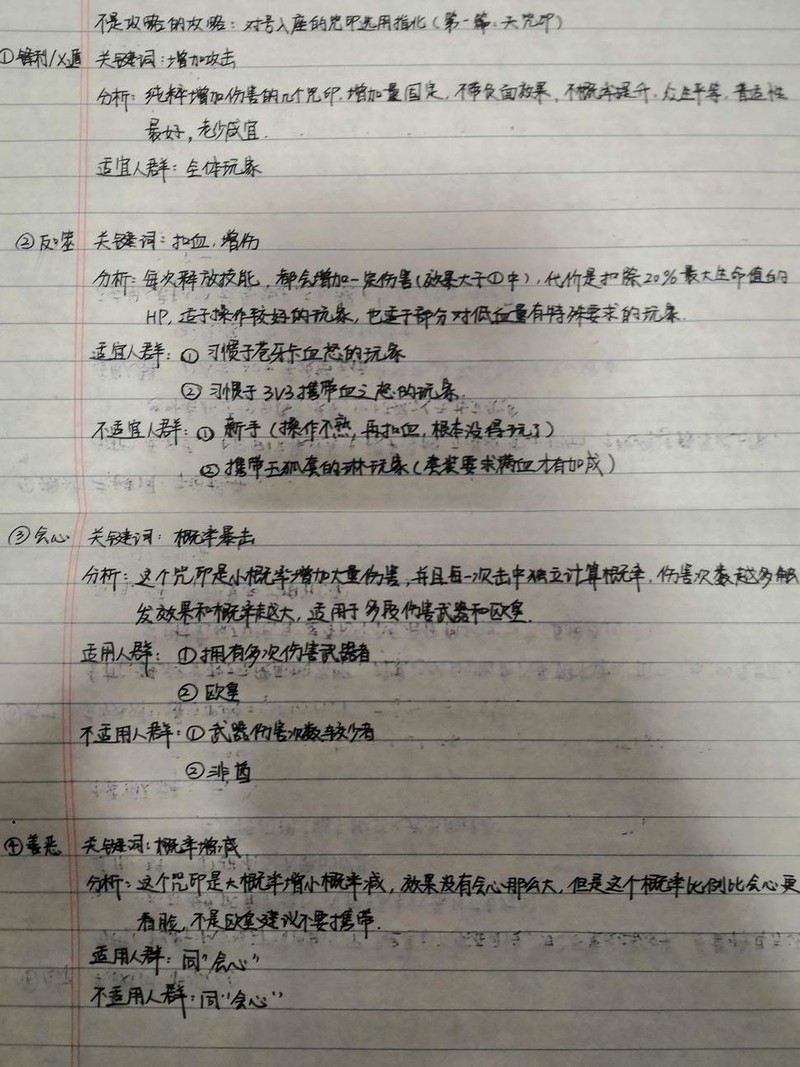 不是攻略的攻略：对号入座的咒印选用指北（第一篇：天咒印）
①锋利/X遁 关键词：增加攻击
分析：纯粹增加伤害的几个咒印，增加量固定，不带负面效果，不概率提升，众生平等，普适性
最好，老少咸宜．
适宜人群：全体玩家
②反噬 关键词：扣血，增伤
分析：每次释放技能，都会增加一定伤害（效果大于①中），代价是扣除20%最大生命值的
HP，适于操作较好的玩家，也适于部分对低血量有特殊要求的玩家．
适宜人群：①习惯于苍牙卡血怒的玩家
②习惯于3V3携带血之怒的玩家．
不适宜人群：①新手（操作不熟，再扣血，根本没得玩了）
②携带玉狐套的琳玩家（套装要求满血才有加成）
③会心 关键词：概率暴击
分析：这个咒印是小概率增加大量伤害，并且每一次击中独立计算概率，伤害次数越多触
发效果和概率越大，适用于多段伤害武器和欧皇．
适用人群：①拥有多次伤害武器者
②欧皇
不适用人群：①武器伤害次数较少者
②非酋
④善恶 关键词：概率增减
分析：这个咒印是大概率增小概率减，效果没有会心那么大，但是这个概率比例比会心更
看脸，不是欧皇建议不要携带．
适用人群：同“会心”
不适用人群：同“会心”